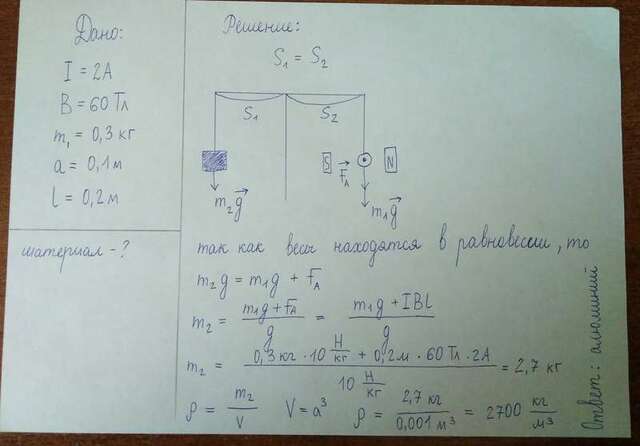 Дано:
I = 2А
B = 60 Тл
m₁ = 0,3 кг
a = 0,1 м
l = 0,2 м
материал - ?
Решение:
S₁ = S₂
S₁ S₂
S F⃗A N
m₂g⃗ m₁g⃗
так как весы находятся в равновесии, то
m₂g = m₁g + FA
m₂ = (m₁g + FA)/g = (m₁g + IBl)/g
m₂ = (0,3 кг · 10 Н/кг + 0,2 м · 60 Тл · 2А)/(10 Н/кг) = 2,7 кг
ρ = m₂/V V = a³ ρ = 2,7 кг/0,001 м³ = 2700 кг/м³
Ответ: алюминий